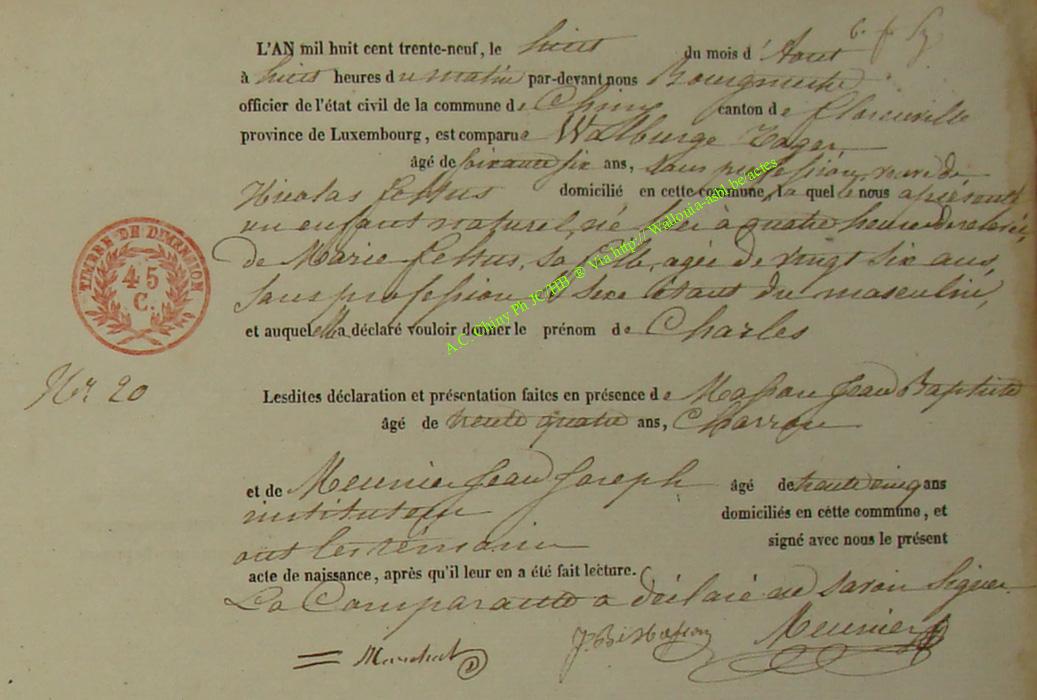 L'AN mil huit cent trente-neuf, le huit du mois d'Aout
à huit heures du matin par-devant nous Bourgmestre
officier de l'état civil de la commune de Chiny canton de Florenville
province de Luxembourg, est comparue Walburge
âgé de soixante six ans, sans profession, veuve de
Nicolas domicilié en cette commune, la quelle nous a présenté
un enfant naturel, né hier à quatre heures de relevée,
de Marie sa fille, agée de vingt six ans,
sans profession, le sexe étant du masculin,
et auquel elle a déclaré vouloir donner le prénom de Charles
TIMBRE DE DIMENSION
45
C.
Nr 20
Lesdites déclaration et présentation faites en présence de Masson Jean Baptiste
âgé de trente quatre ans, Charron
et de Meunier Jean Joseph âgé de trente cinq ans
instituteur domiciliés en cette commune, et
ont les témoins signé avec nous le présent
acte de naissance, après qu'il leur en a été fait lecture.
La Comparante a déclaré ne savoir signer.
J. B. Masson Meunier
A.C. Chiny Ph JC/HB ® Via http://Wallouia-asbl.be/actes